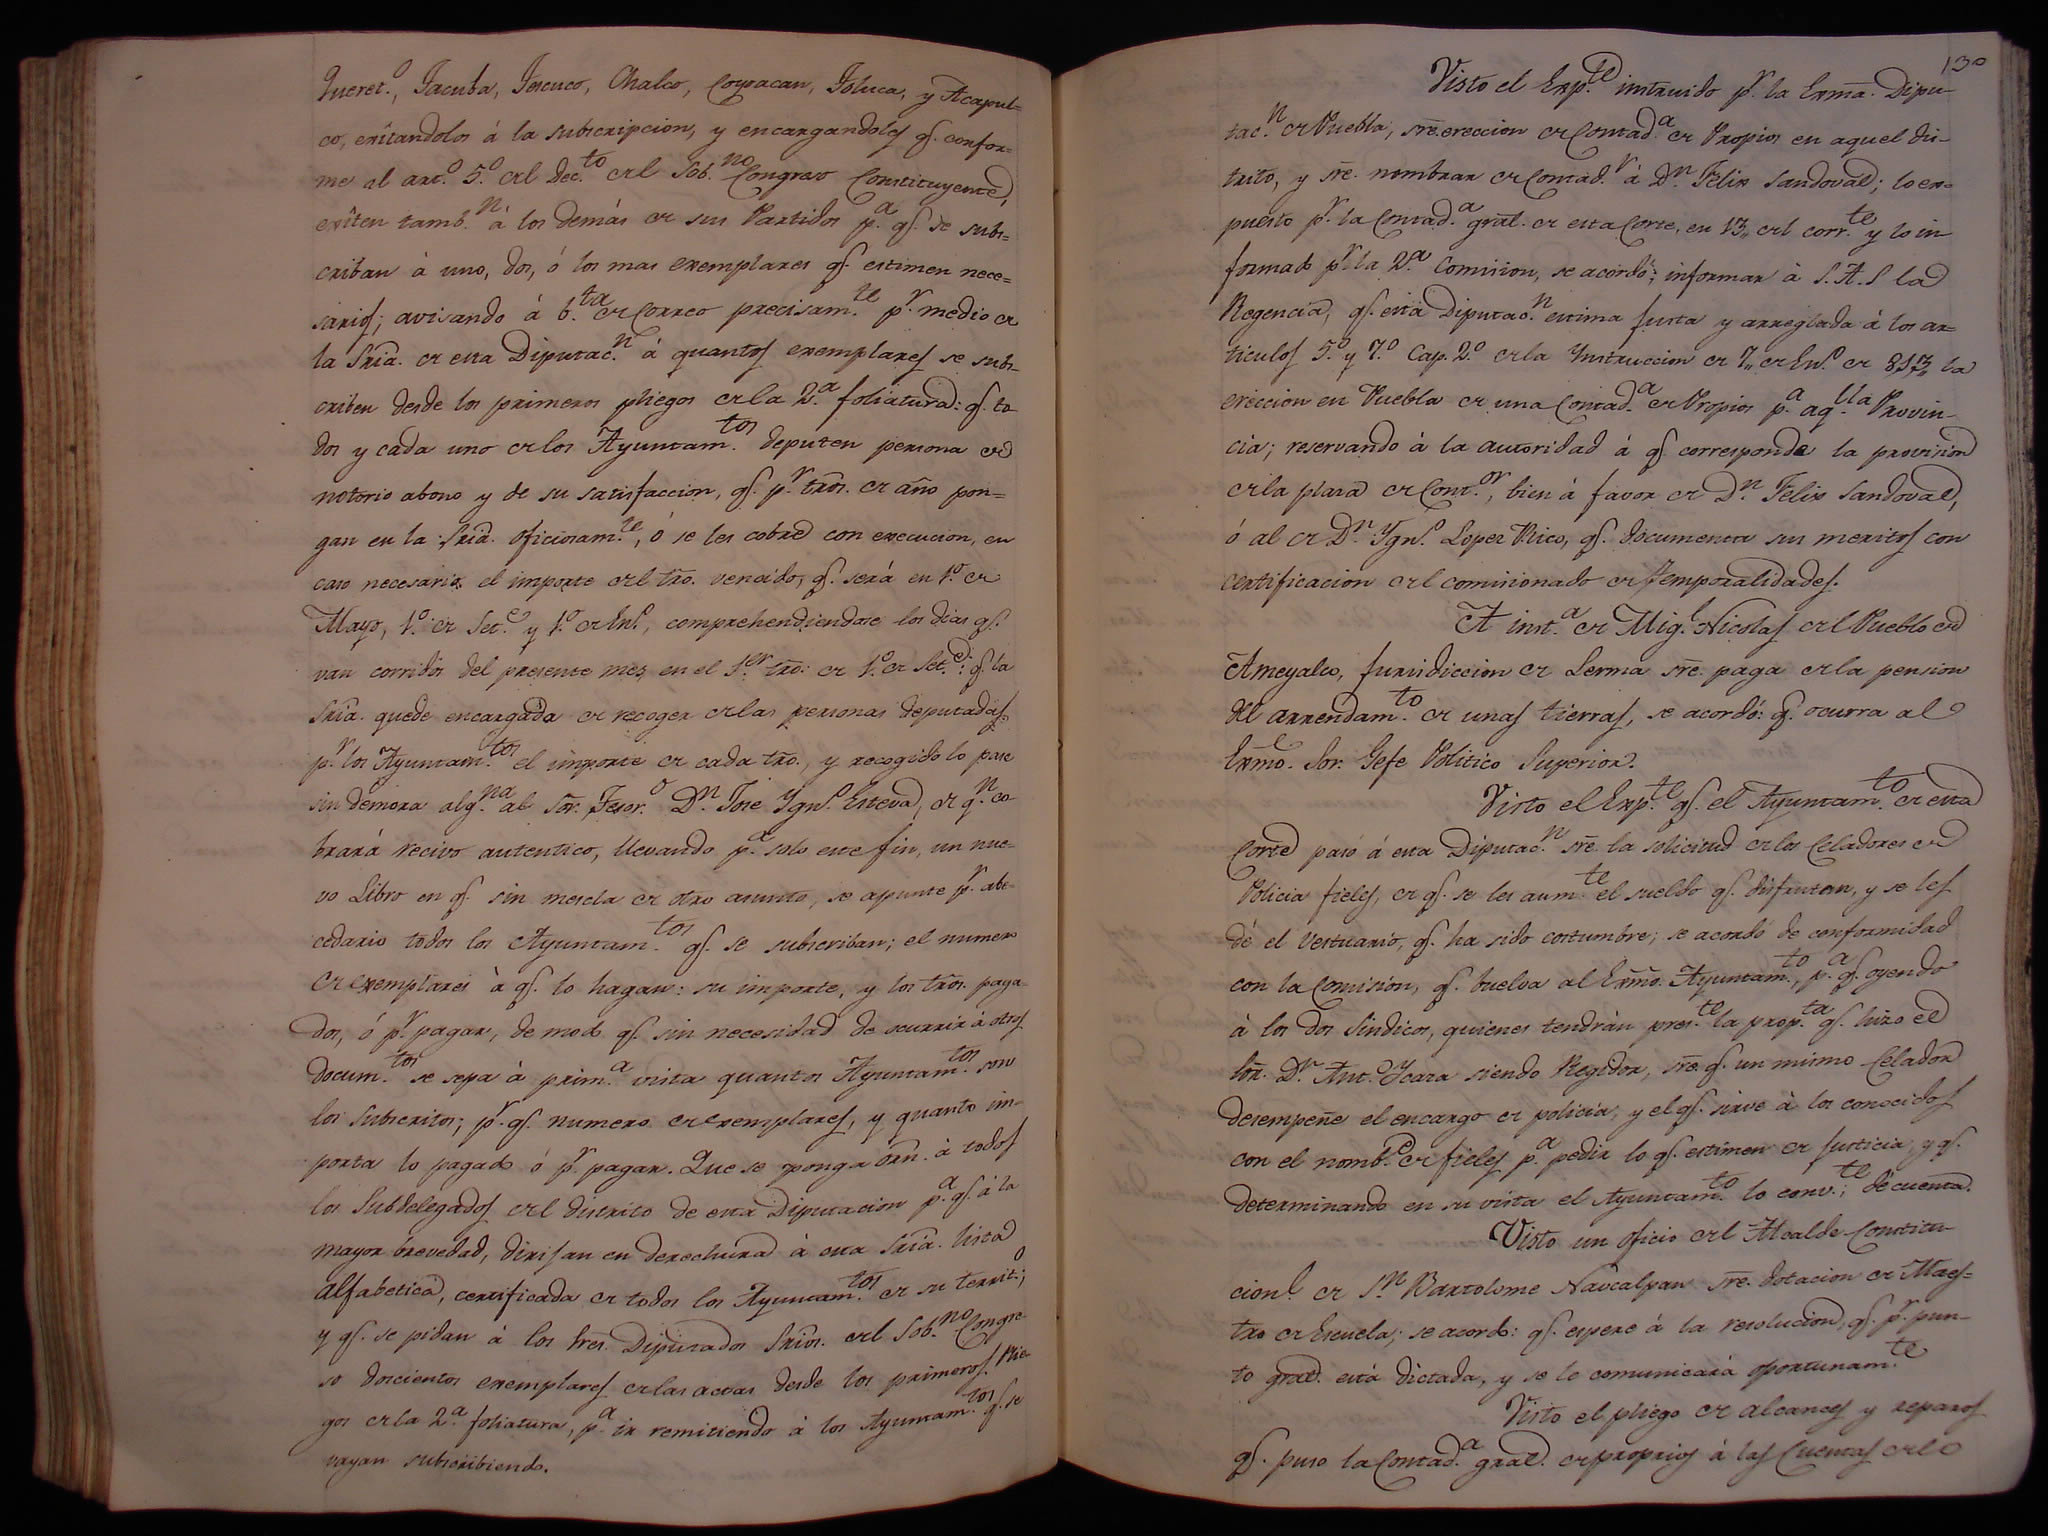 Queret.º, Tacuba, Tescuco, Chalco, Coyoacan, Toluca, y Acapul=
co, exîtandolos á la subscripcion, y encargandoles q.e confor=
me al art.º 5.º del Dec.to del Sob.no Congreso Constituyente,
exîten tamb.n á los demás de sus Partidos p.a q.e se subs=
criban à uno, dos, ó los mas exemplares q.e estimen nece=
sarios; avisando á b.ta de Correo precisam.te p.r medio de
la Sria. de esta Diputac.n á quantos exemplares se subs-
criben desde los primeros pliegos de la 2.a foliatura: q.e to
dos y cada uno de los Ayuntam.tos deputen persona de
notorio abono y de su satisfaccion, q.e p.r tros. de año pon=
gan en la Sria. oficiosam.te, ó se les cobre con execucion, en
caso necesario, el importe del tro. vencido, q.e será en 1.º de
Mayo, 1.º de Set.e y 1.º de En.º, comprehendiendose los dias q.e
van corridos del presente mes, en el 1.er tro: de 1.º de Set.e: q.e la
Sria. quede encargada de recoger de las personas deputadas
p.r los Ayuntam.tos el importe de cada tro., y recogido lo pase
sin demora alg.na al Sor. Tesor.º D.n Jose Ygn.º Esteva, de q.n co
brará recivo autentico, llevando p.a solo este fin, un nue-
vo Libro en q.e sin mescla de otro asunto, se apunte p.r abe-
cedario todos los Ayuntam.tos q.e se subscriban; el numero
de exemplares à q.e lo hagan: su importe, y los tros. paga-
dos, ó p.r pagar, de modo q.e sin necesidad de ocurrir á otros
docum.tos se sepa à prim.a vista quantos Ayuntam.tos son
los subscritos; p.r q.e numero de exemplares, y quanto im-
porta lo pagado ó p.r pagar. Que se ponga orn. à todos
los Subdelegados del distrito de esta Diputacion p.a q.e á la
mayor brevedad, dirijan en derechura à esta Sria. lista
alfabetica, certificada de todos los Ayuntam.tos de su territ.º;
y q.e se pidan à los Sres. Diputados Srios. del Sob.no Congre-
so doscientos exemplares de las actas desde los primeros Plie-
gos de la 2.a foliatura, p.a ir remitiendo à los Ayuntam.tos q.e se
vayan subscribiendo.
130
Visto el Exp.te instruido p.r la Exma. Dipu-
tac.n de Puebla, sre. ereccion de Contad.a de Propios en aquel dis-
trito, y sre. nombrar de Contad.r á D.n Felix Sandoval; lo ex-
puesto p.r la Contad.a gral. de esta Corte, en 13,, del corr.te y lo in-
formado p.r la 2.a Comision, se acordó: informar à S. A. S la
Regencia, q.e esta Diputac.n estima justa y arreglada á los ar-
ticulos 5.º y 7.º Cap. 2.º de la Ynstruccion de 7,, de En.º de 813,, la
ereccion en Puebla de una Contad.a de Propios p.a aq.lla Provin-
cia; reservando à la autoridad á q.e corresponda la provision
de la plaza de Cont.or, bien á favor de D.n Felix Sandoval,
ó al de D.n Ygn.º Lopez Rico, q.e documenta sus meritos con
certificacion del comisionado de Temporalidades.
A inst.a de Mig.l Nicolas del Pueblo de
Ameyalco, Jurisdiccion de Lerma sre. paga de la pension
del arrendam.to de unas tierras, se acordó: q.e ocurra al
Exmo. Sor. Gefe Politico Superior.
Visto el Exp.te q.e el Ayuntam.to de esta
Corte pasó á esta Diputac.n sre. la solicitud de los Celadores de
Policia fieles, de q.e se les aum.te el sueldo q.e disfrutan, y se les
dé el Vestuario, q.e ha sido costumbre; se acordó de conformidad
con la Comisión, q.e buelva al Exmo. Ayuntam.to, p.a q.e oyendo
à los dos Sindicos, quienes tendrán pres.te la prop.ta q.e hizo el
Sor. D.n Ant.º Ycaza siendo Regidor, sre. q.e un mismo Celador
desempeñe el encargo de policia, y el q.e sirve à los conocidos
con el nomb.e de fieles p.a pedir lo q.e estimen de justicia, y q.e
determinando en su vista el Ayuntam.to lo conv.te; dé cuenta.
Visto un oficio del Alcalde Constitu-
cion.l de S.n Bartolome Naucalpan sre. dotacion de Maes=
tro de Escuela; se acordo: q.e espere á la resolucion, q.e p.r pun-
to gral. está dictada, y se le comunicará oportunam.te
Visto el pliego de alcances y reparos
q.e puso la Contad.a gral. de propios á las Cuentas del